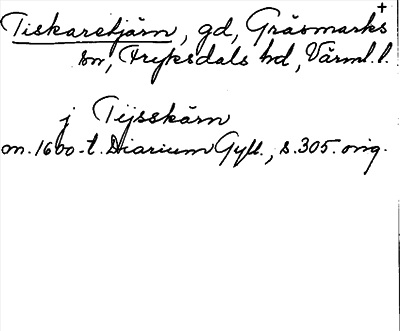 Tiskaretjärn, gd, Gräsmarks +
sn, Fryksdals hd, Värml. l.
j Tijsskärn
om. 1600-t. Diarium Gyll., s. 305. orig.